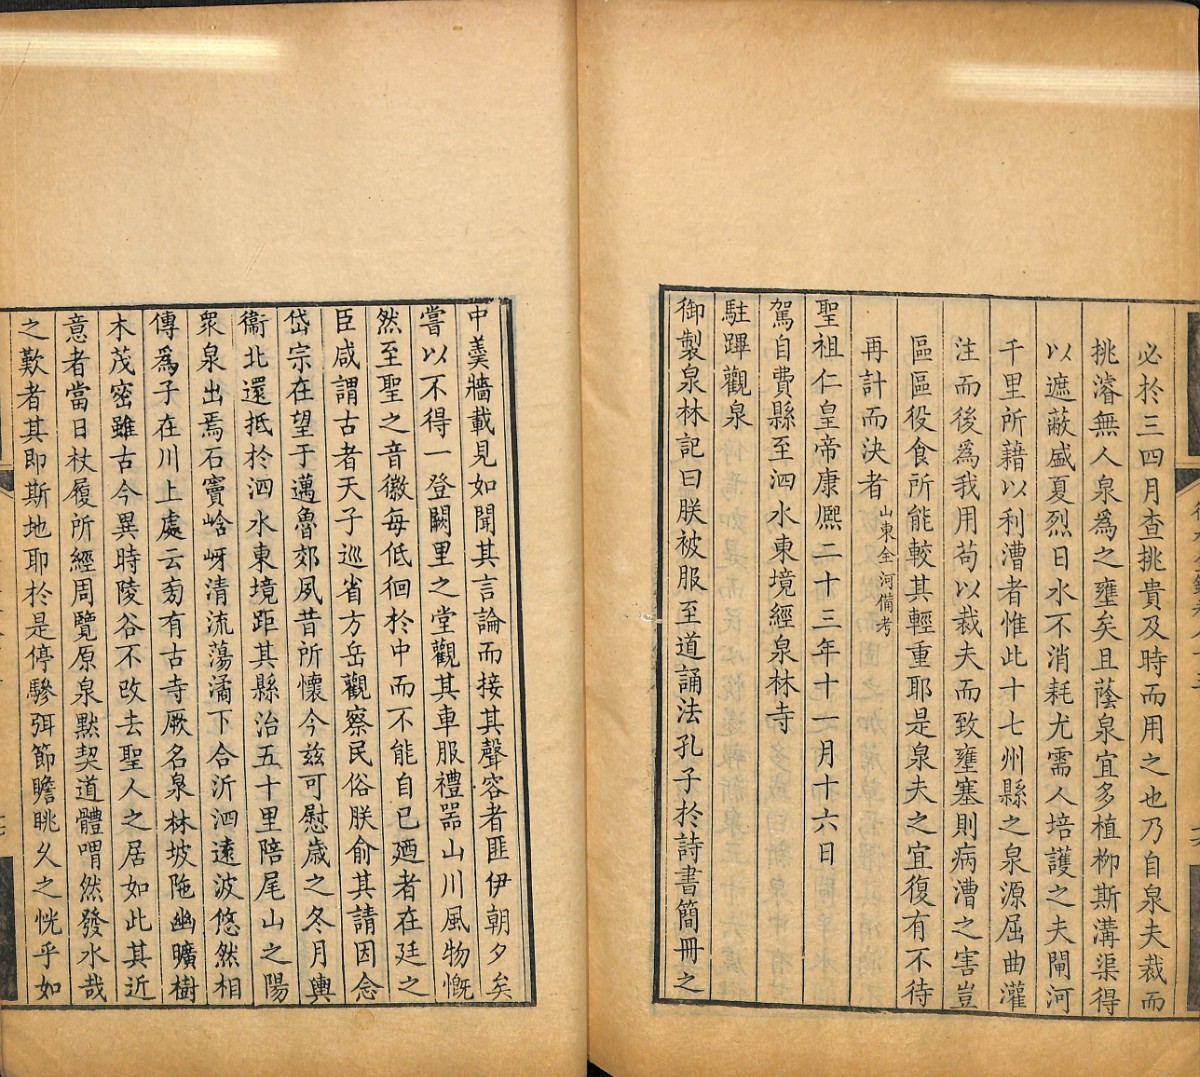 必於三四月查挑貴及時而用之也乃自泉夫裁而
挑濬無人泉爲之壅矣且蔭泉宜多植柳斯溝渠得
以遮蔽盛夏烈日水不消耗尤需人培護之夫閘河
千里所藉以利漕者惟此十七州縣之泉源屈曲灌
注而後爲我用苟以裁夫而致壅塞則病漕之害豈
區區役食所能較其輕重耶是泉夫之宜復有不待
再計而決者山東全河備考
聖祖仁皇帝康熈二十三年十一月十六日
駕自費縣至泗水東境經泉林寺
駐蹕觀泉
御製泉林記曰朕被服至道誦法孔子於詩書簡冊之
中羹牆載見如聞其言論而接其聲容者匪伊朝夕矣
嘗以不得一登闕里之堂觀其車服禮器山川風物慨
然至聖之音徽每低徊於中而不能自已廼者在廷之
臣咸謂古者天子巡省方岳觀察民俗朕俞其請因念
岱宗在望于邁魯郊夙昔所懷今兹可慰歲之冬月輿
衞北還抵於泗水東境距其縣治五十里陪尾山之陽
眾泉出焉石竇崡岈清流蕩潏下合沂泗遠波悠然相
傳爲子在川上處云旁有古寺厥名泉林坡陁幽曠樹
木茂密雖古今異時陵谷不改去聖人之居如此其近
意者當日杖履所經周覽原泉默契道體喟然發水哉
之歎者其即斯地耶於是停驂弭節瞻眺久之恍乎如